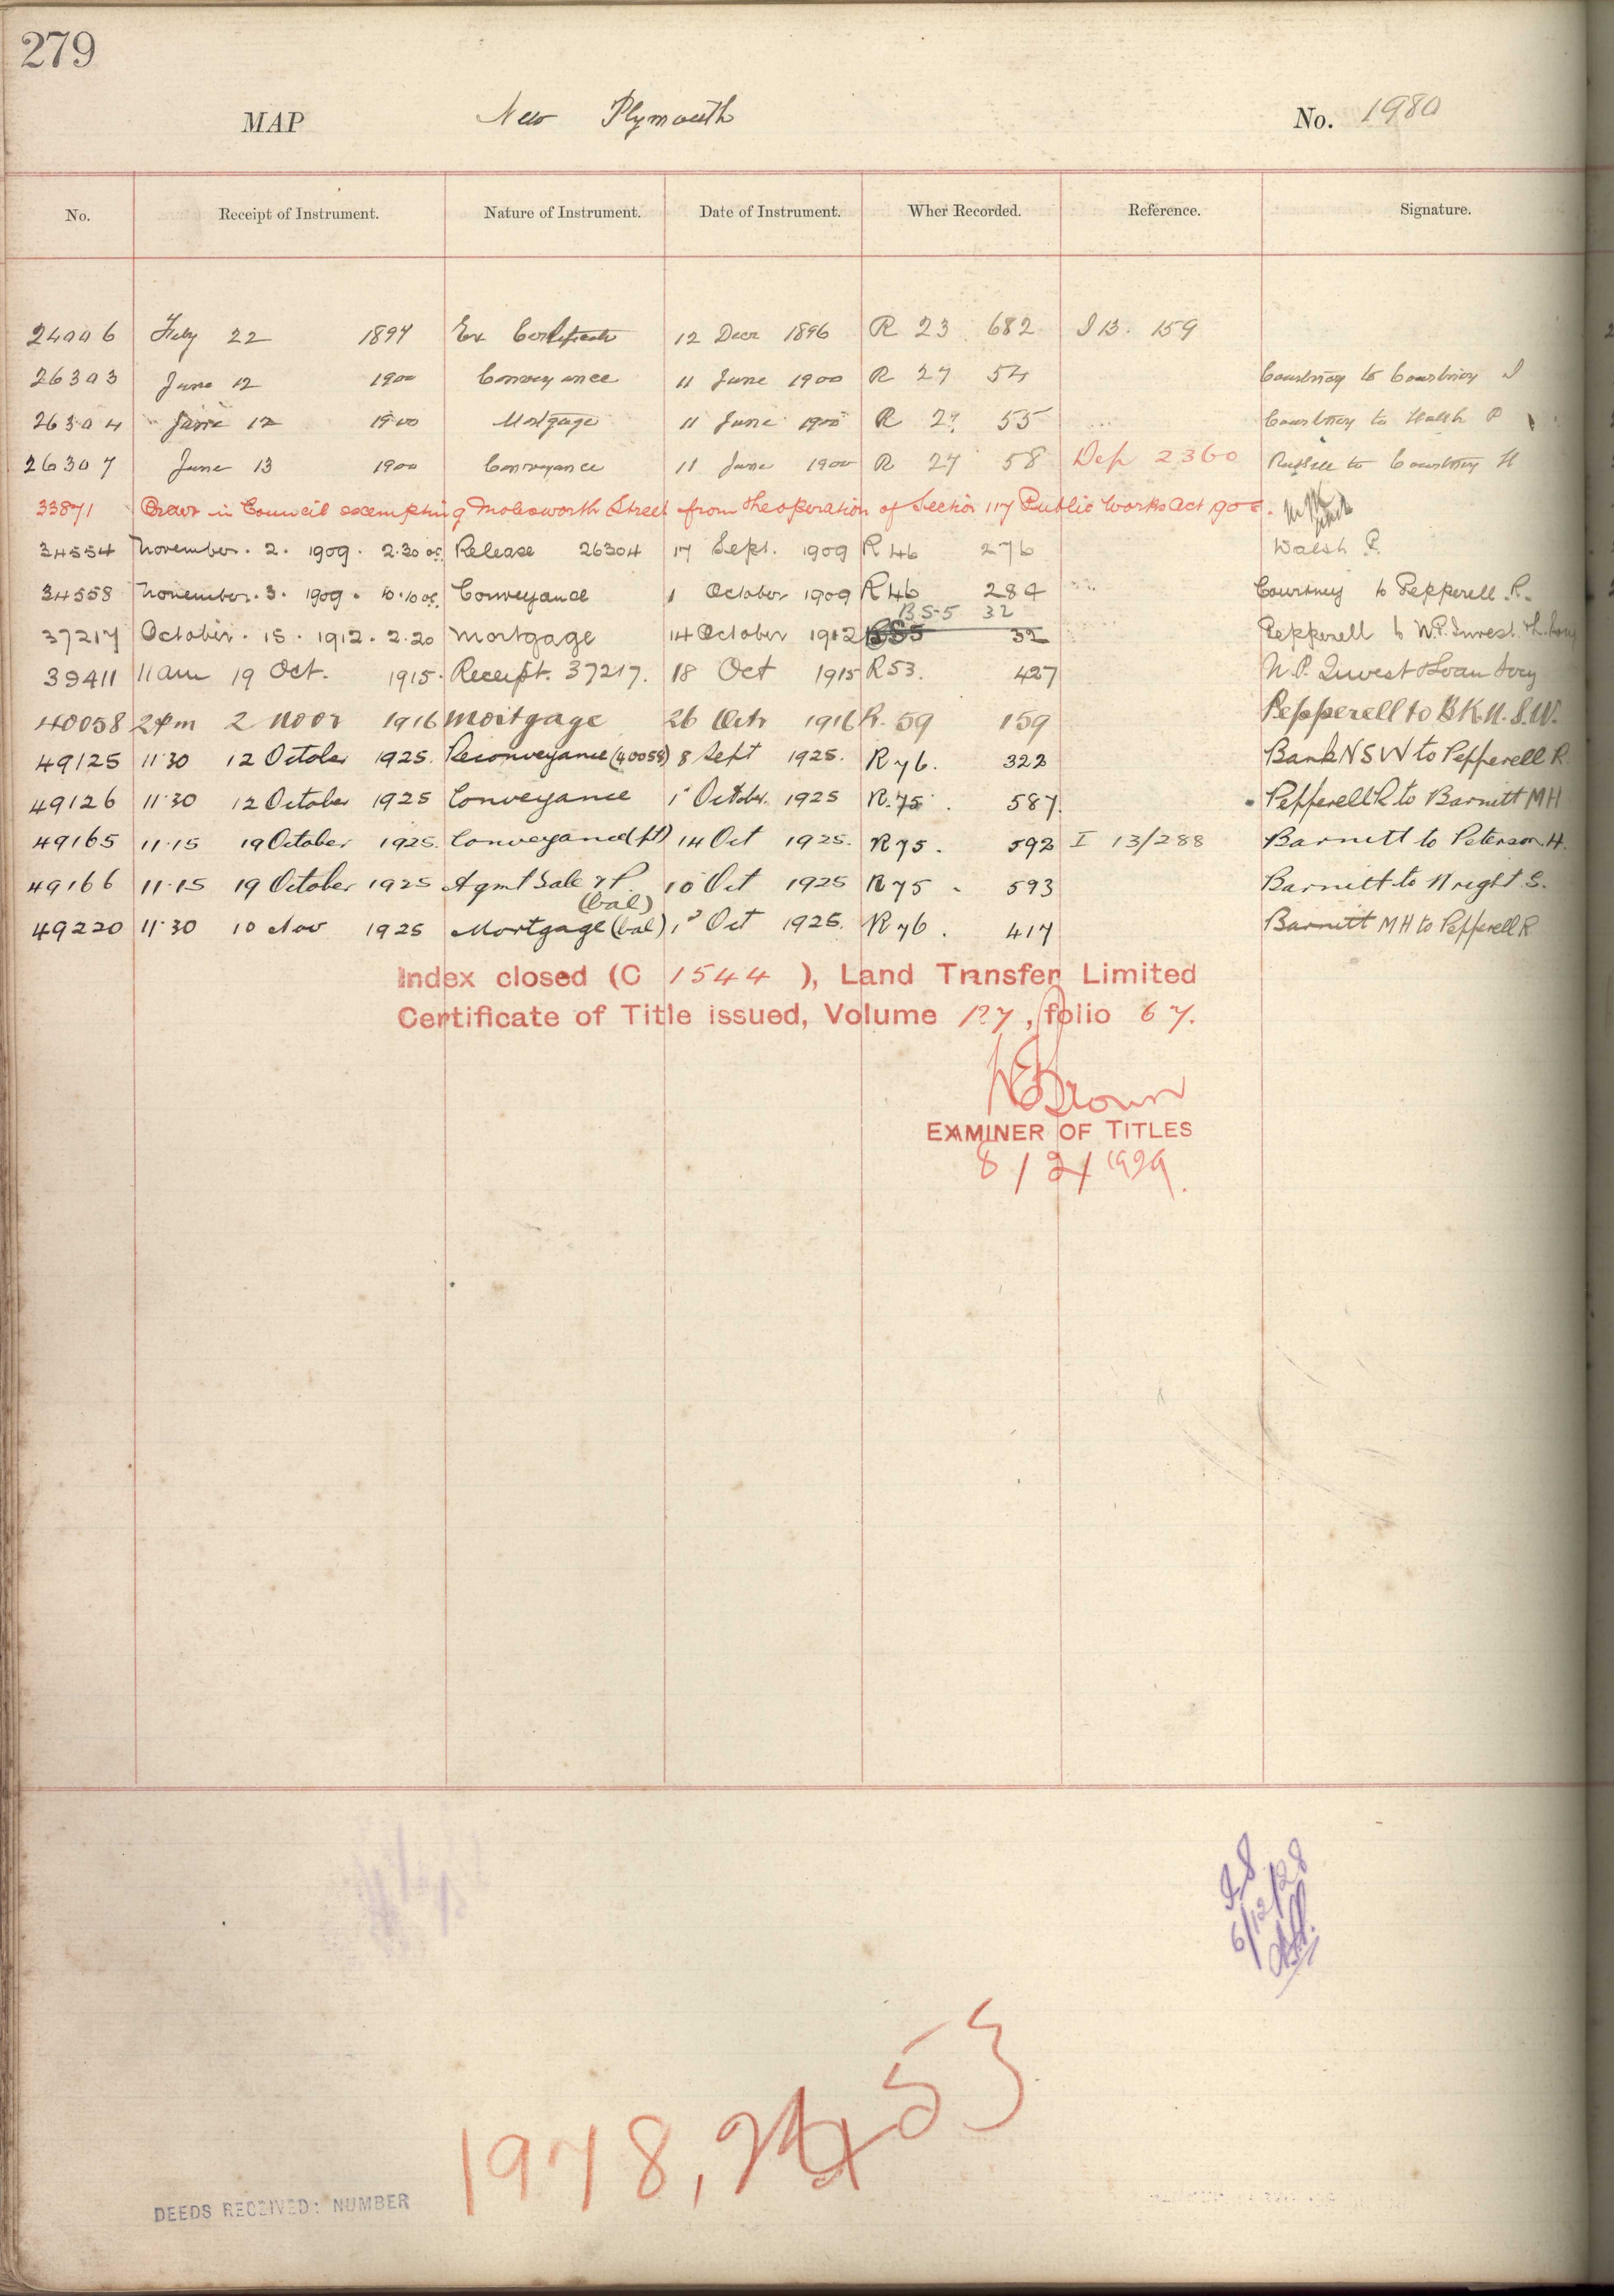 279
MAP New Plymouth No. 1980
No. Receipt of Instrument. Nature of Instrument. Date of Instrument. Wher Recorded. Reference. Signature.
24006 Feby 22 1897 Ex Certificate 12 Decr 1896 R 23 682 I 13. 159
26303 June 12 1900 Conveyance 11 June 1900 R 27 54 Courtney to Courtney J
26304 June 12 1900 Mortgage 11 June 1900 R 27 55 Courtney to Walsh P
26307 June 13 1900 Conveyance 11 June 1900 R 27 58 Dep 2360 to Courtney H
33871 Order in Council exempting Molesworth Street from the operation of Section 117 Public Works Act 190
34554 November. 2. 1909. 2.30 oc Release 26304 17 Sept. 1909 R 46 276 Walsh P.
34558 November. 3. 1909. 10.10 oc Conveyance 1 October 1909 R 46 284 Courtney to Pepperell. R.
B 55 32
37217 October. 15. 1912. 2.20 Mortgage 14 October 1912 B55 32 Pepperell to N.P. Invest.
39411 11 am 19 Oct. 1915. Receipt. 37217. 18 Oct 1915 R 53. 427 N.P. Invest & Loan Socy
40058 2 pm 2 Novr 1916 Mortgage 26 Octr 1916 R. 59 159 Pepperell to BK. N.S.W.
49125 11.30 12 October 1925. Reconveyance (40058) 8 Sept 1925. R 76. 322 Bank NSW to Pepperell R.
49126 11.30 12 October 1925 Conveyance 1 October. 1925 R. 75. 587. Pepperell R to Barnitt MH
49165 11.15 19 October 1925. Conveyance (pt) 14 Oct 1925. R 75. 592 I 13/288 Barnitt to Peterson H.
49166 11.15 19 October 1925 Agmt Sale & P. 10 Oct 1925 R 75. 593 Barnitt to Wright S.
(bal)
49220 11.30 10 Nov 1925 Mortgage (bal) 1 Oct 1925. R 76. 417 Barnitt MH to Pepperell R
Index closed (C 1544 ), Land Transfer Limited
Certificate of Title issued, Volume 127, folio 67.
Brown
EXAMINER OF TITLES
8/2/1929.
6/12/28
1978,
53
DEEDS RECEIVED: NUMBER